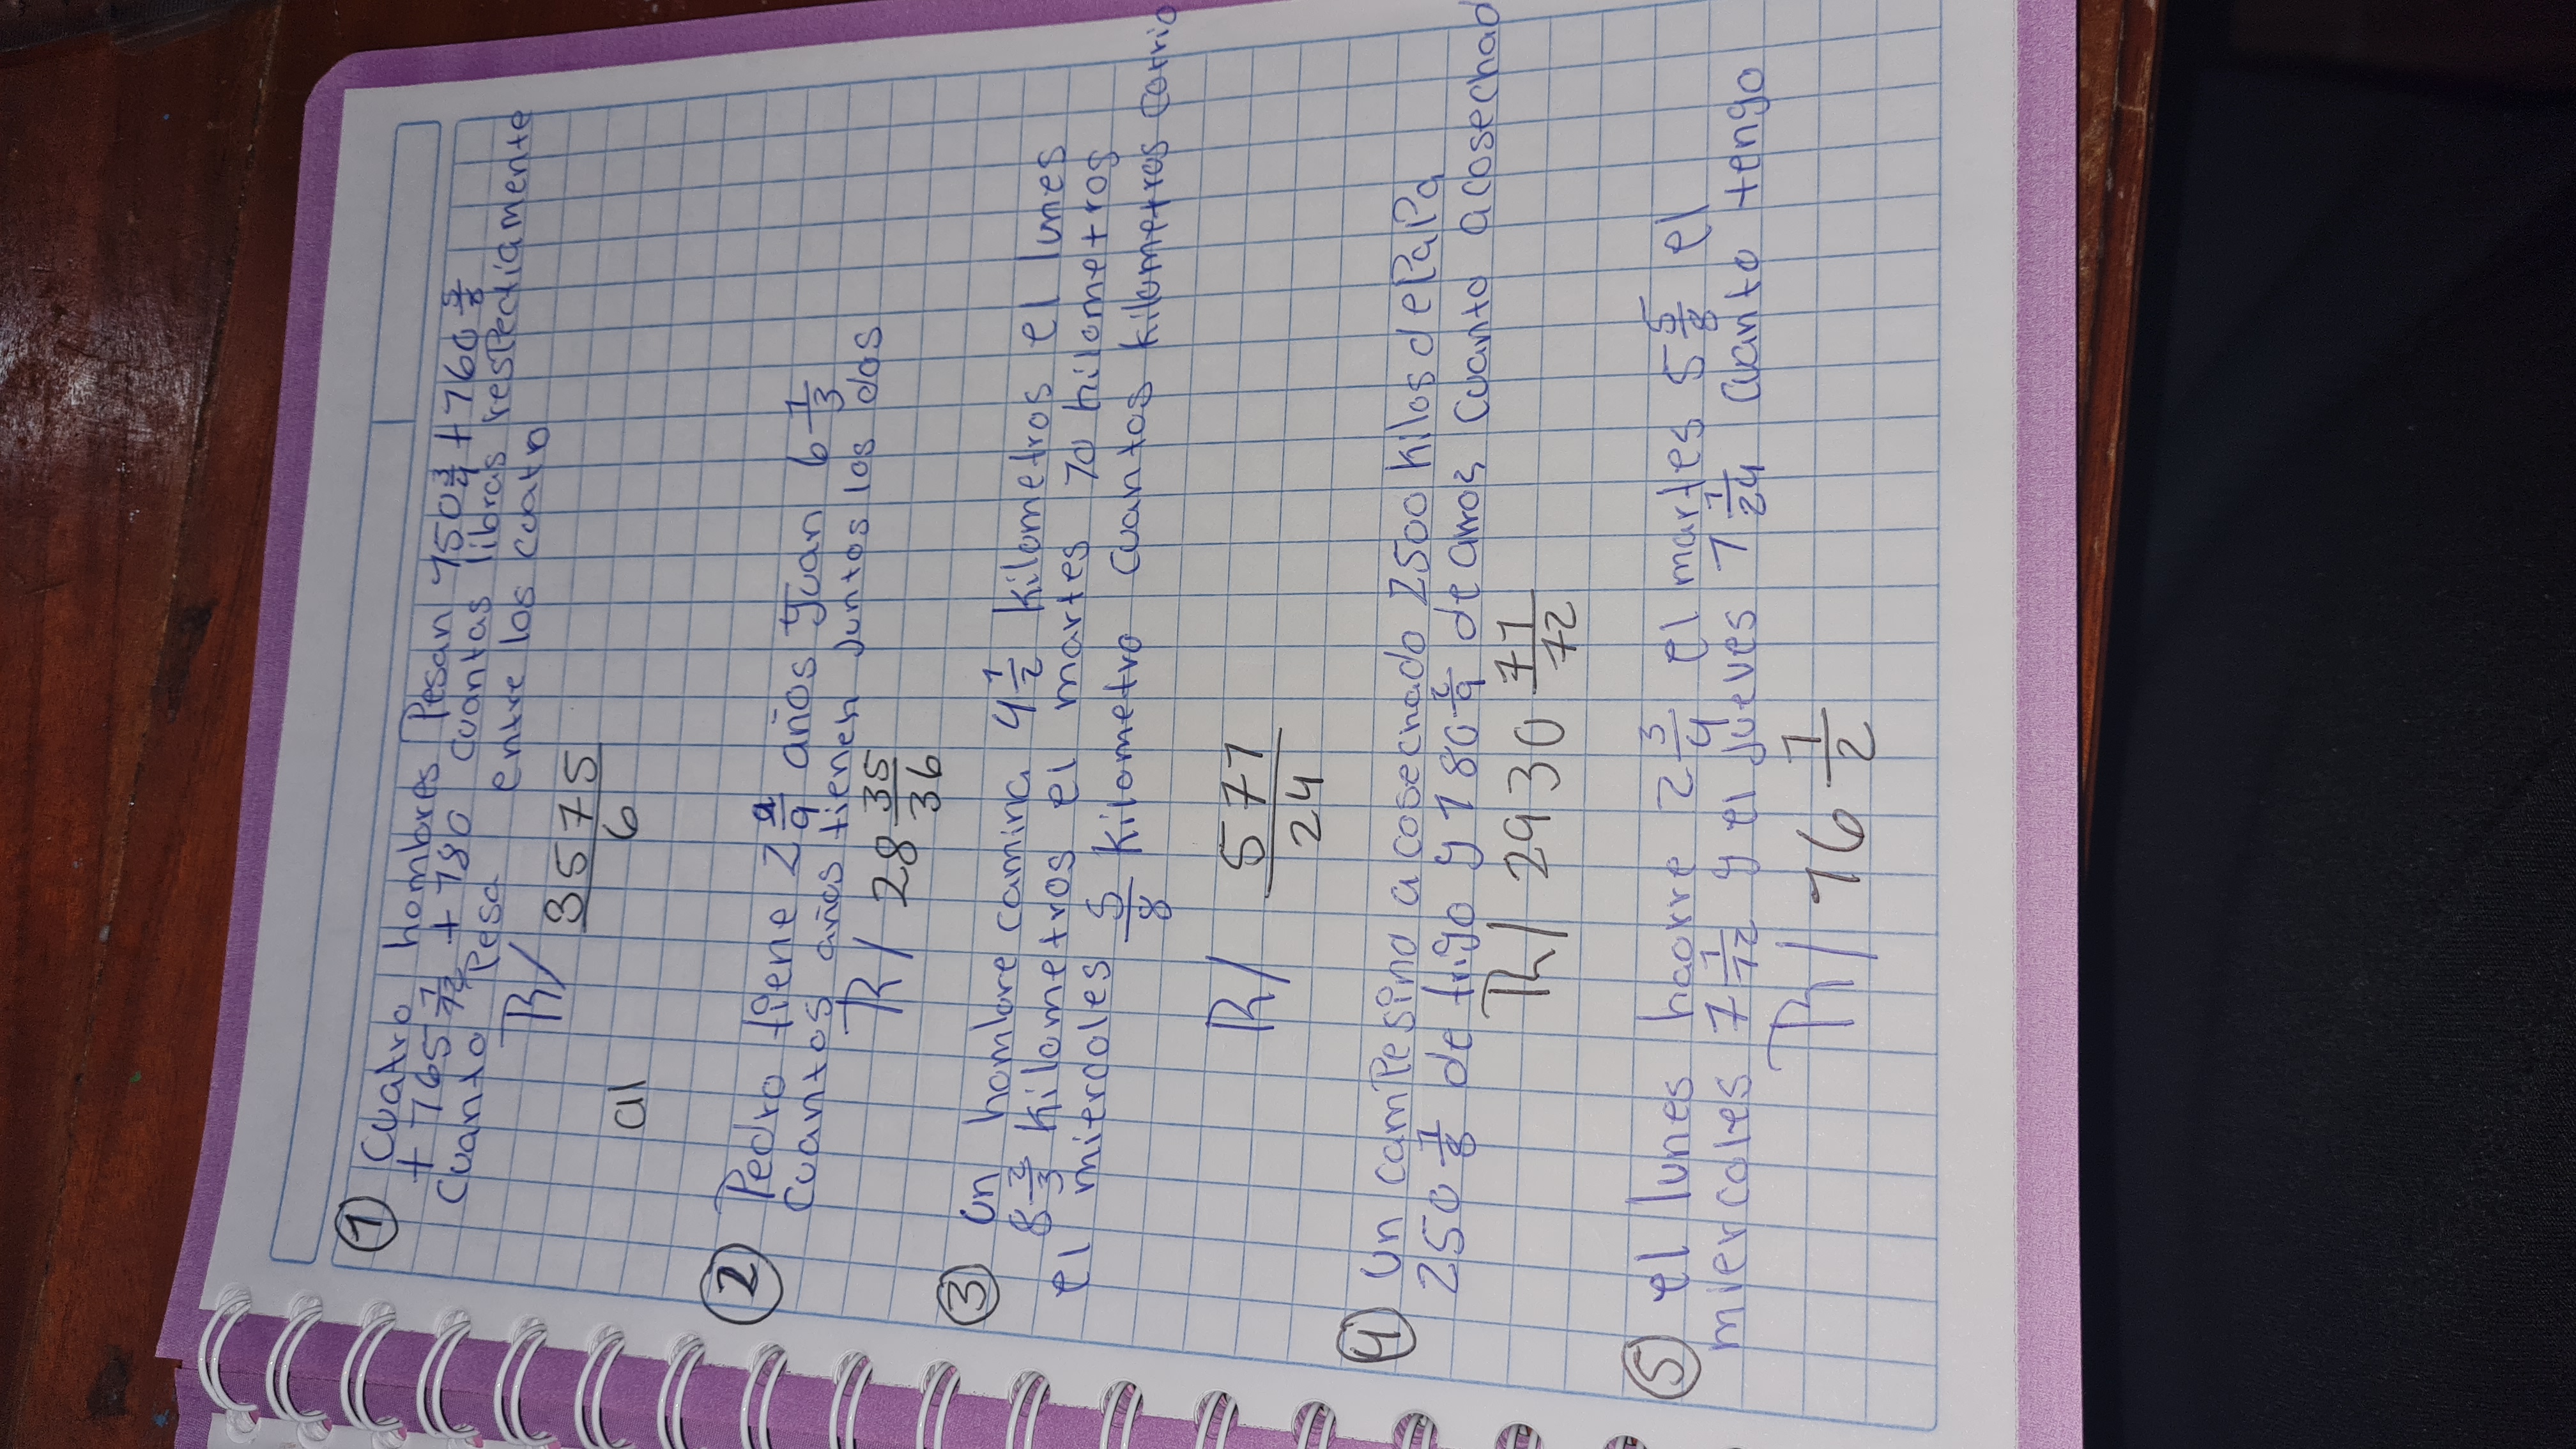 ① Cuatro hombres Pesan 150 3/4 + 160 5/8
+ 165 1/12 + 180 cuantas libras respectiamente
cuanto Pesa entre los cuatro
R/ 3575/6
al
② Pedro tiene 2 2/9 años y Juan 6 1/3
cuantos años tienen Juntos los dos
R/ 28 35/36
③ un hombre camina 4 1/2 kilometros el lunes
8 2/3 kilometros el martes 10 kilometros
el miercoles 5/8 kilometro cuantos kilometros corrio
R/ 571/24
④ un camPesino a cosechado 2500 kilos de PaPa
250 1/8 de trigo y 180 2/9 de arros cuanto a cosechad
R/ 2930 71/72
⑤ el lunes haorre 2 3/4 el martes 5 5/8 el
miercoles 7 1/12 y el jueves 1 1/24 cuanto tengo
R/ 16 1/2